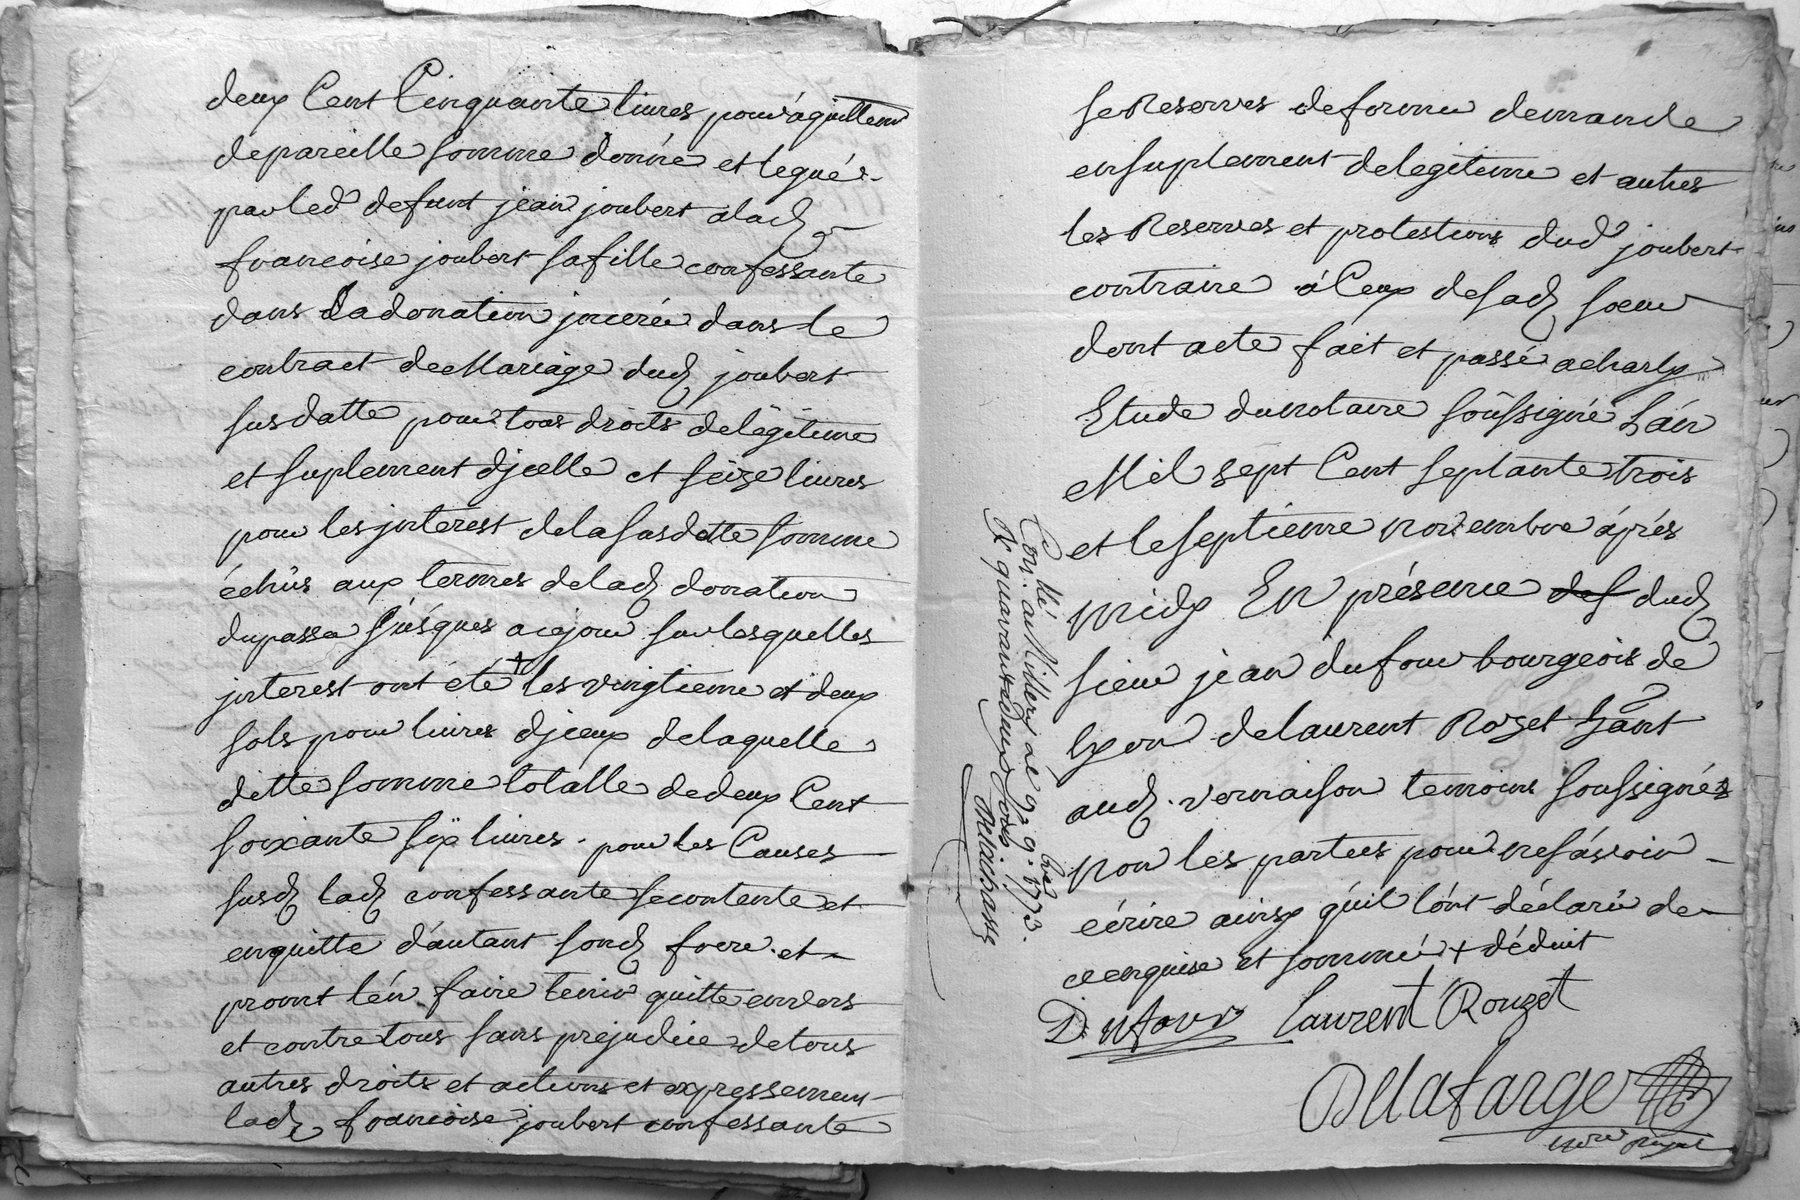 deux Cent Cinquante livres pour aquittem
de pareille somme donnée et leguée
par led defunt jean joubert a lad
francoise joubert sa fille confessante
dans La donation jncerée dans le
contract de Mariage dud joubert
sus datte pour tous droits de légitime
et suplement djcelle et séize livres
pour les jnterest de la susdette somme
échûs aux termes de lad donation
du passé júsques a cejour sur lesquelles
jnterest ont été + les vingtieme et deux
sols pour livres djceux de laquelle
ditte somme totalle de deux Cent
soixante six livres. pour les Causes
susd lad confessante se contente et
en quitte d'autant sond frere. et
promt l'én faire tenir quitte envers
et contre tous sans prejudice de tous
autres droits et actions et expressemen
lad francoise joubert confessante
se Reserves de former demande
en suplement de legitime et autres
les Reserves et protestions dud joubert
contraire á Ceux de sad soeur
dont acte fait et passé a charly
Etude du notaire soussigné L'án
Mil sept Cent septante trois
et le septieme novembre áprés
midy En présence des dud
sieur jean dufour bourgeois de
lyon de laurent Rozet hant
aud. vernaison temoins soussignés
non les parties pour ne sávoir
écrire ainsy qúil lónt déclaré de
ce enquise et sommé + déduit
Dufour Laurent Rouzet
Delafarge
nore royal
Con. llé au Millery le 9. 9. bre 1773.
R quarante
Delachass